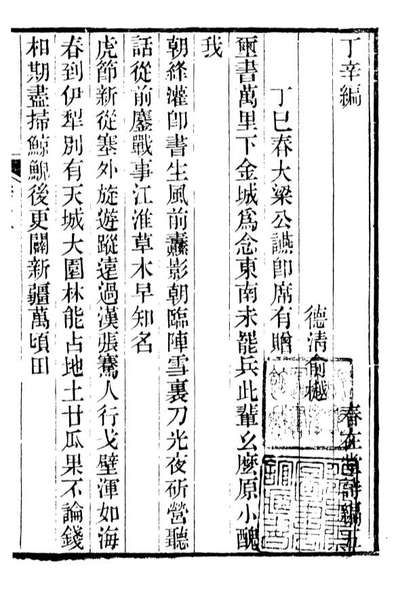 丁辛編　春在堂詩編五
德清俞樾
丁巳春大梁公讌卽席有贈
璽書萬里下金城爲念東南未罷兵此輩幺麽原小醜
我
朝絳灌卽書生風前纛影朝臨陣雪裏刀光夜斫營聽
話從前鏖戰事江淮草木早知名
虎節新從塞外旋遊蹤遠過漢張騫人行戈壁渾如海
春到伊犂別有天城大園林能占地土甘瓜果不論錢
相期盡掃鯨鯢後更闢新疆萬頃田